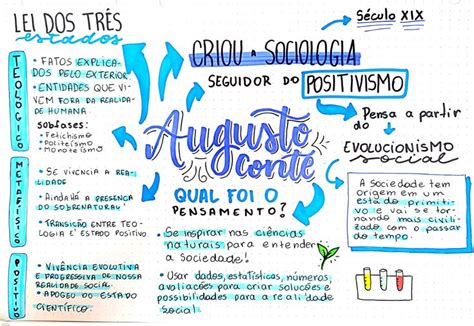 LEI DOS TRÊS
estados
TEOLÓGICO
• FATOS EXPLICA-
DOS PELO EXTERIOR.
• ENTIDADES QUE VI-
VEM FORA DA REALIDA-
DE HUMANA.
subfases:
• Fetichismo
• Politeísmo
• Monoteísmo
METAFÍSICO
• SE VIVENCIA A RE-
ALIDADE
• AINDA HÁ A PRESENÇA
DO SOBRENATURAL
• TRANSIÇÃO ENTRE TEO-
LOGIA E ESTADO POSITIVO
POSITIVO
• VIVÊNCIA EVOLUTIVA
E PROGRESSIVA DE NOSSA
REALIDADE SOCIAL
• APOGEU DO ESTADO
CIENTÍFICO.
Século XIX
CRIOU A SOCIOLOGIA
SEGUIDOR DO POSITIVISMO
Augusto
conte
QUAL FOI O
PENSAMENTO?
• Se inspirar nas ciências
naturais para entender
a Sociedade!
• Usar dados, estatísticas, números,
avaliações para criar soluções e
possibilidades para a realidade
social
Pensa a partir
do
EVOLUCIONISMO
social
A Sociedade tem
origem em um
estado primiti-
vo e vai se tor-
nando mais civili-
zado com o passar
do tempo.